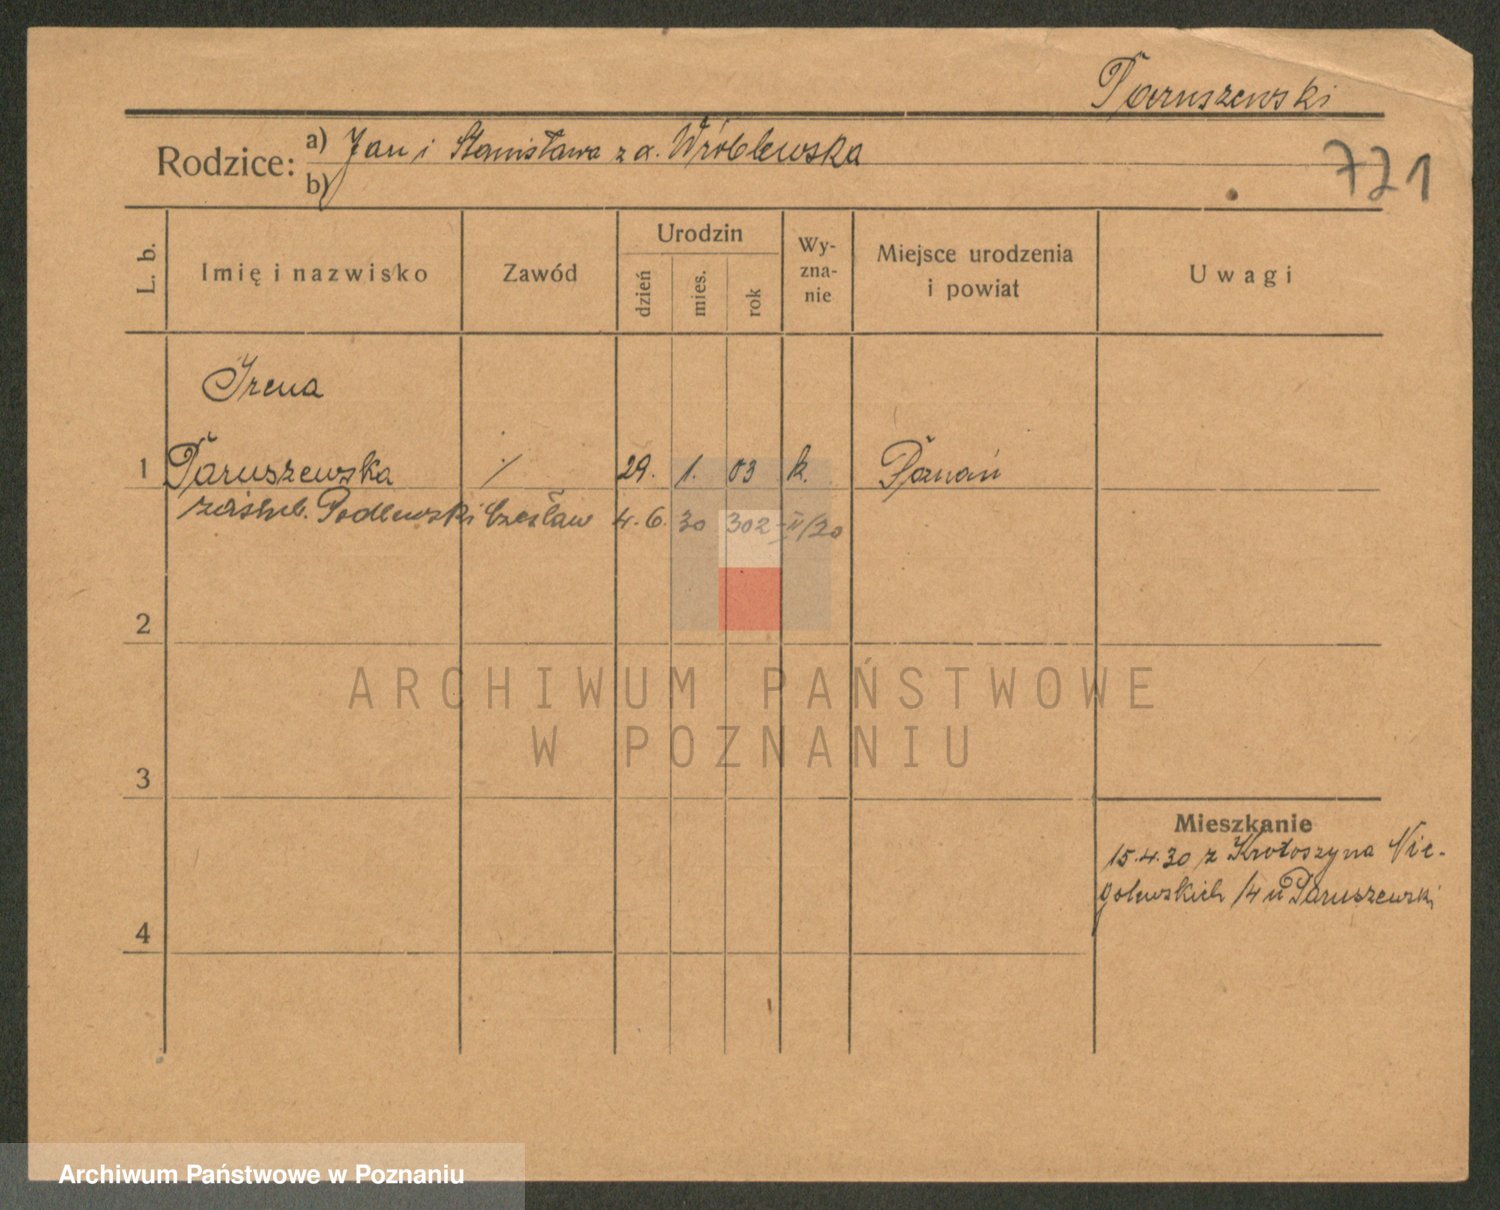 Paruszewski
Rodzice: a) Jan i Stanisława z d. Wróblewska
b)
721
L. b. Imię i nazwisko Zawód Urodzin dzień mies. rok Wy-zna-nie Miejsce urodzenia i powiat Uwagi
Irena
1 Paruszewska ⁒ 29. 1. 03 k. Poznań
zaślub. Podlewski Czesław 4. 6. 30 302 II/30
2
3
Mieszkanie
15.4.30 z Krotoszyna Nie-
golewskich 14 u Paruszewski
4
ARCHIWUM PAŃSTWOWE
W POZNANIU
Archiwum Państwowe w Poznaniu